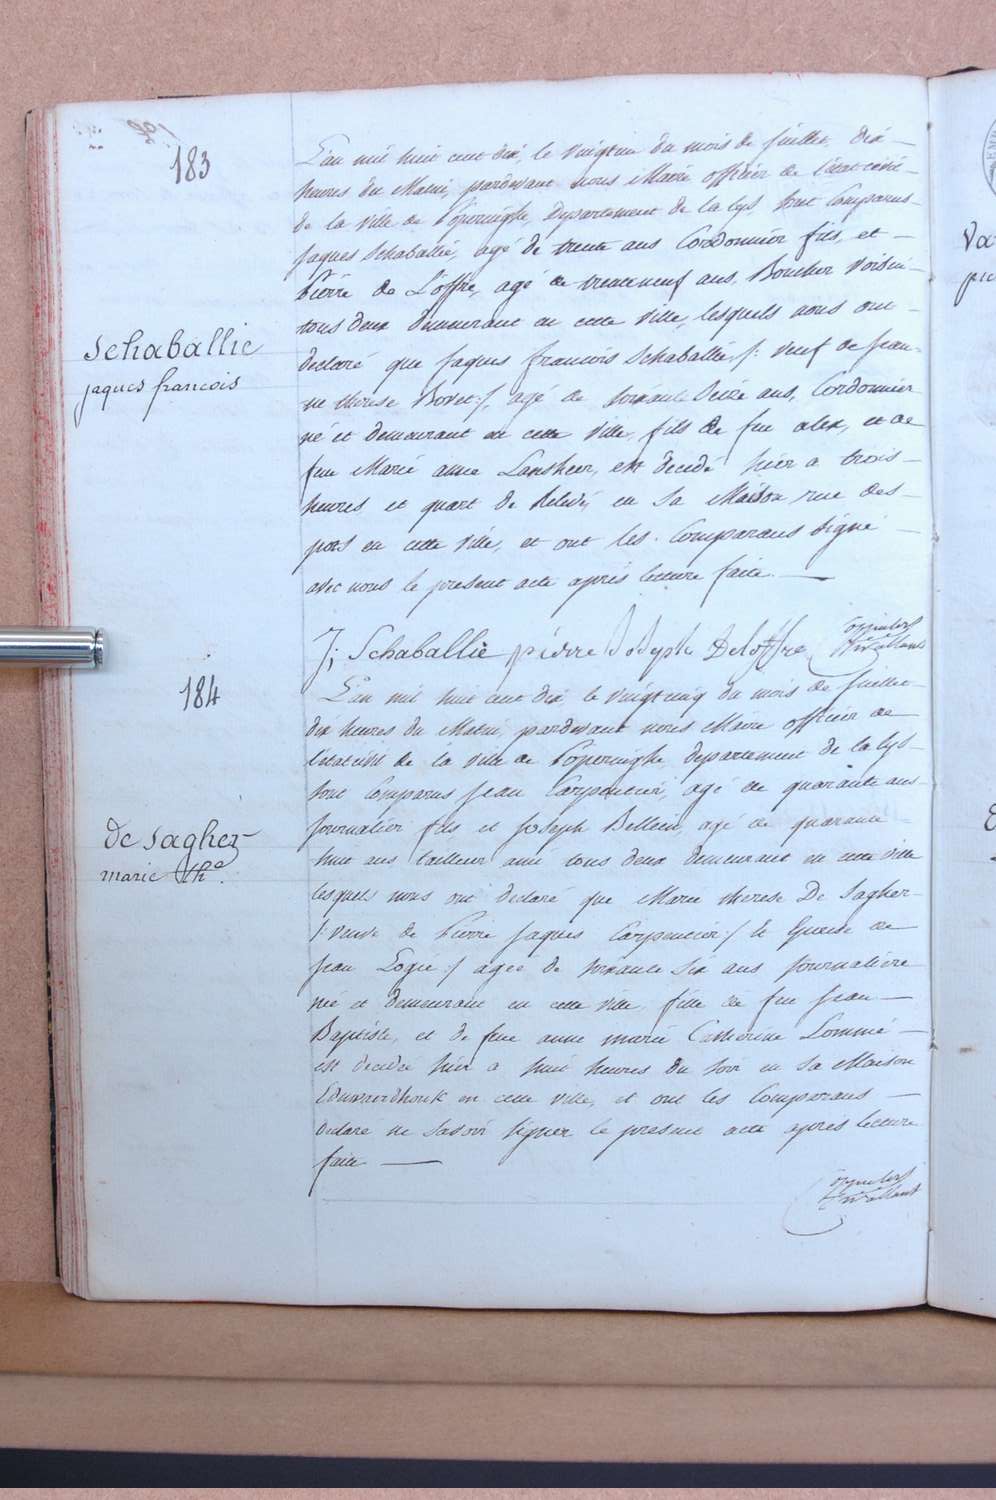 183
L'an mil huit cent dix, le Vingt un du mois de Juillet, dix
heures du Matin, pardevant nous Maire officier de l'état civil
de la ville de Poperinghe, Département de la Lys, sont Comparus
Jaques Schaballie, agé de trente ans Cordonnier fils, et
Pierre de L'offre, agé de trenteneuf ans, Boucher Voisin
tous deux demeurant en cette ville, lesquels nous ont
declaré que Jaques francois Schaballie, /: Veuf de Jean-
Schaballie
jaques francois
ne therese Bovet :/, agé de soixante Seize ans, Cordonnier
né et demeurant en cette Ville, fils de feu alex, et de
feue Marie anne Lansheer, est decedé hier a trois
heures et quart de Relevé, en Sa Maison rue des
pots en cette Ville, et ont les Comparans Signé
avec nous le present acte après lecture faite.
J; Schaballie pierre Joseph Deloffre
184
L'an mil huit cent dix, le vingtcinq du mois de Juillet
dix heures du Matin, pardevant nous Maire officier de
l'état civil de la ville de Poperinghe departement de la Lys
sont Comparus Jean Carpentier, agé de quarante ans
Journalier fils et Joseph Bellein, agé de quarante
De Sagher
marie Th.e
huit ans tailleur ami tous deux demeurant en cette ville
lesquels nous ont declaré que Marie therese De Sagher
/: veuve de Pierre Jaques Carpentier :/ et Epouse de
Jean Logie :/ agée de soixante Six ans Journalière
né et demeurant en cette ville, fille de feu Jean
Baptiste, et de feue anne marie Catherine Lommé
est decedé hier a huit heures du soir en Sa Maison
Eduwaerdhouk en cette ville, et ont les Comparans
declaré ne Savoir Signer le present acte après lecture
faite